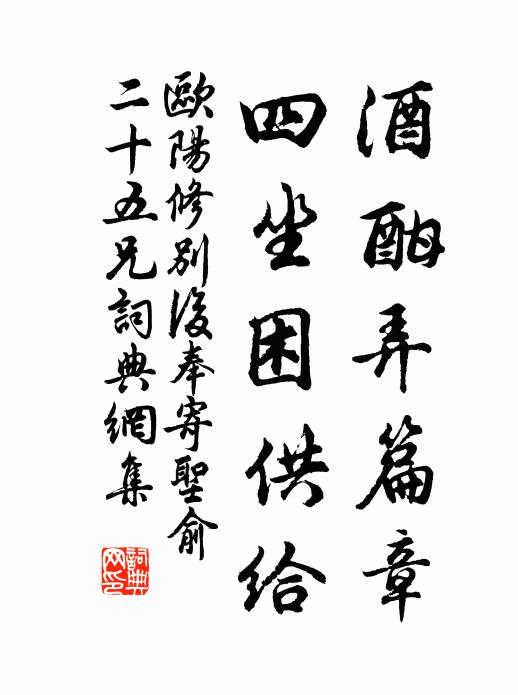 酒酣弄篇章
四坐困供给
歐陽修別後奉寄聖俞
二十五兄詞典網集
詞典网印